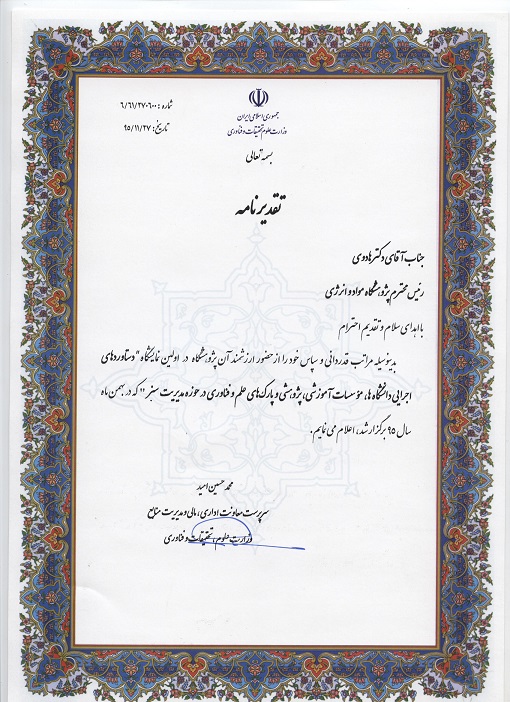 جمهوری اسلامی ایران
وزارت علوم، تحقیقات و فناوری
شماره : ۶/۶۱/۲۷۰۶۰۰
تاریخ : ۹۵/۱۱/۲۷
بسمه تعالی
تقدیرنامه
جناب آقای دکتر هادوی
رئیس محترم پژوهشگاه مواد و انرژی
با اهدای سلام و تقدیم احترام
بدینوسیله مراتب قدردانی و سپاس خود را از حضور ارزشمند آن پژوهشگاه در اولین نمایشگاه "دستاوردهای
اجرایی دانشگاه ها، مؤسسات آموزشی، پژوهشی و پارک های علم و فناوری در حوزه مدیریت سبز" که در بهمن ماه
سال ۹۵ برگزار شد، اعلام می نمایم.
محمد حسین امید
سرپرست معاونت اداری، مالی و مدیریت منابع
وزارت علوم، تحقیقات و فناوری